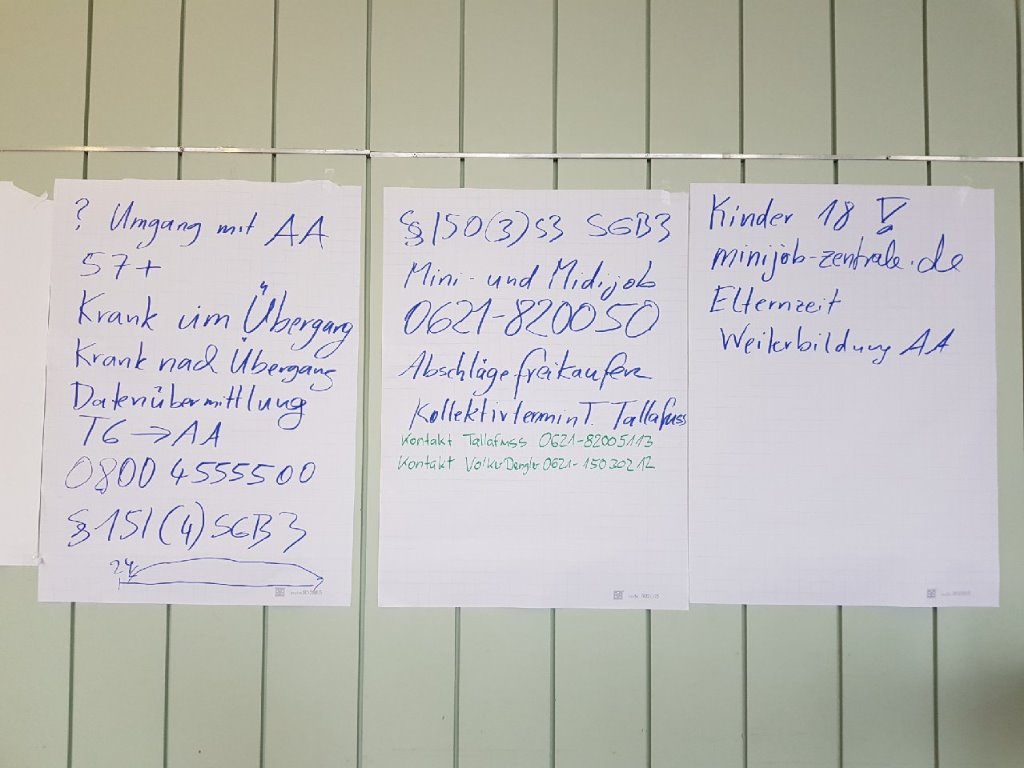 ? Umgang mit AA
57+
Krank im Übergang
Krank nach Übergang
Datenübermittlung
TG → AA
0800 4555500
§ 151 (4) SGB 3
24
§ 150 (3) S3 SGB 3
Mini- und Midijob
0621-820050
Abschläge freikaufen
Kollektivtermin T. Tallafuss
Kontakt Tallafuss 0621-82005113
Kontakt Volker Dengler 0621-15030212
Kinder 18
minijob-zentrale.de
Elternzeit
Weiterbildung AA